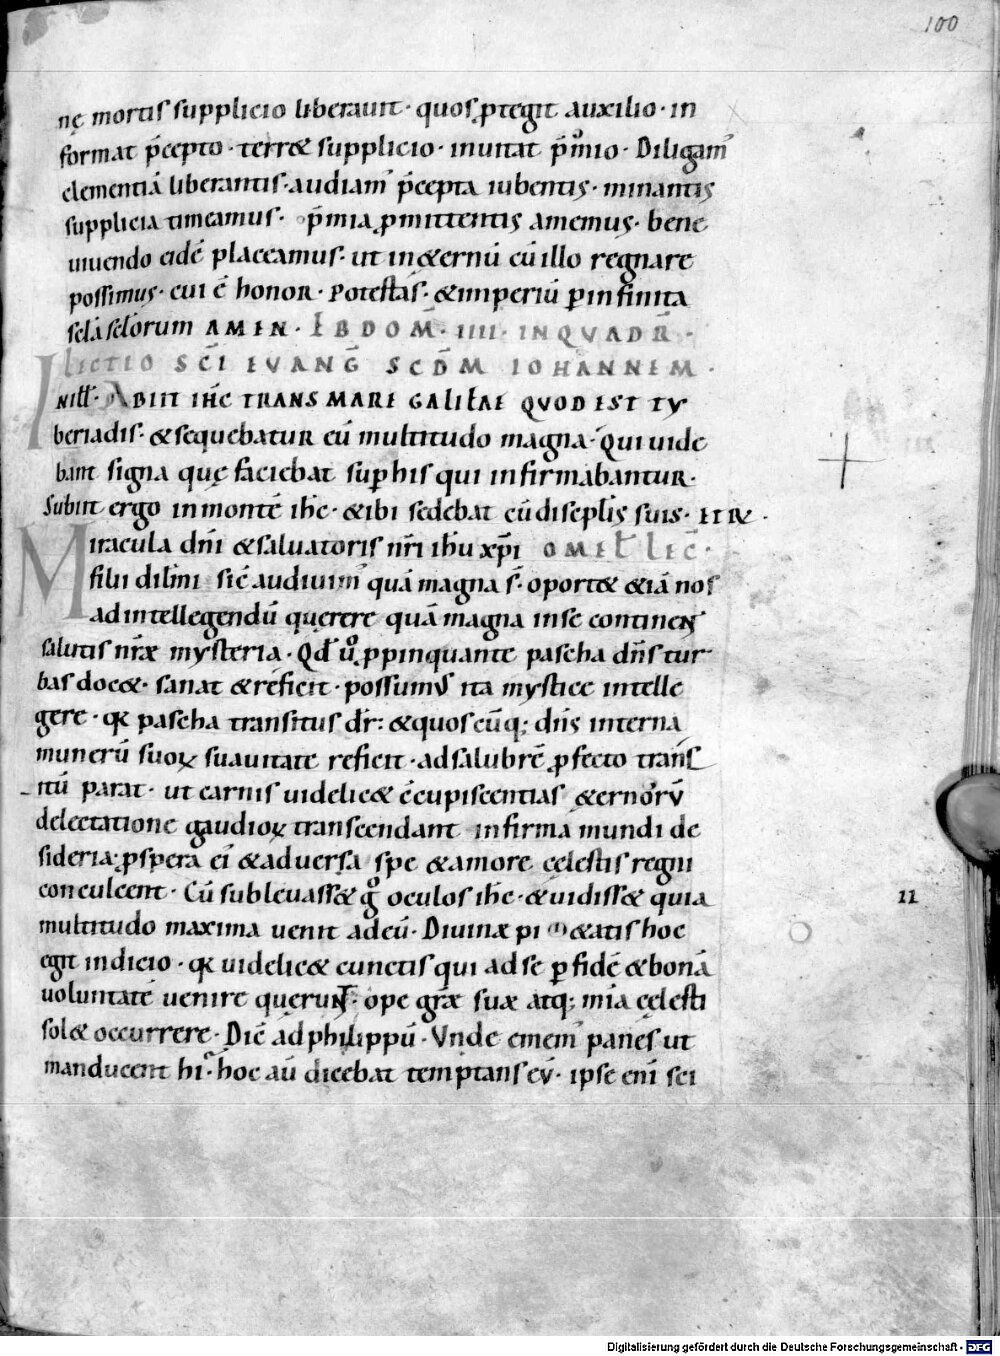 100
nę mortis supplicio liberauit · quos ꝓtegit auxilio · in
format p̄cepto · terr& supplicio · inuitat p̄mio · Diligam᾽
clementiā liberantis · audiam᾽ p̄cepta iubentis · minantis
supplicia timeamus · p̄mia ꝓmittentis amemus · bene
uiuendo eidē placeamus · ut in &ernū cū illo regnare
possimus · cui ē honor · potestas · & imperiū ꝑ infinita
sc̄la sc̄lorum AMEN · EBDOM̄ · IIII · IN QVADR̄ ·
LECTIO SC̄I EVANḠ SCDM̄ IOHANNEM ·
IN ill̄ · ABIIT IH̄C TRANS MARE GALILAE QVOD EST TY
beriadis · & sequebatur eū multitudo magna · Qui uide
bant signa quę faciebat suꝑ his qui infirmabantur ·
Subiit ergo in montē ih̄c · & ibi sedebat cū discipl̄is suis · ET R̄ ·
Miracula dn̄i & saluatoris nr̄i ih̄u xp̄i OMEL̄ LEC̄ ·
filii dil̄mi sic̄ audiuim᾽ quā magna s̄ · oport& &iā nos
ad intellegendū quęrere quā magna in se continent
salutis nr̄æ mysteria · Qd̄ ů ꝓpinquante pascha dn̄s tur
bas doc& · sanat & reficit · possumus ita mystice intelle
gere · qꝛ pascha transitus dr̄ : & quoscūq; dn̄s interna
munerū suoꝝ suauitate reficit · ad salubrē ꝓfecto transi
tū parat · ut carnis uidelic& c̄cupiscentias &ernorū
delectatione gaudioꝝ transcendant infirma mundi de
sideria · ꝓspera ei᾽ & aduersa spe & amore cęlestis regni
conculcent · Cū subleuass& g̊ oculos ih̄c · & uidiss& quia
multitudo maxima uenit ad eū · Diuinæ pi&atis hoc
egit indicio · qꝛ uidelic& cunctis qui ad se ꝑ fidē & bonā
uoluntatē uenire querunt · ope gr̄æ suæ atq; mīa cęlesti
sol& occurrere · Dic̄ ad philippū · Vnde emem᾽ panes ut
manducent hi · hoc aū dicebat temptans eū · ipse enī sci
22
Digitalisierung gefördert durch die Deutsche Forschungsgemeinschaft - DFG